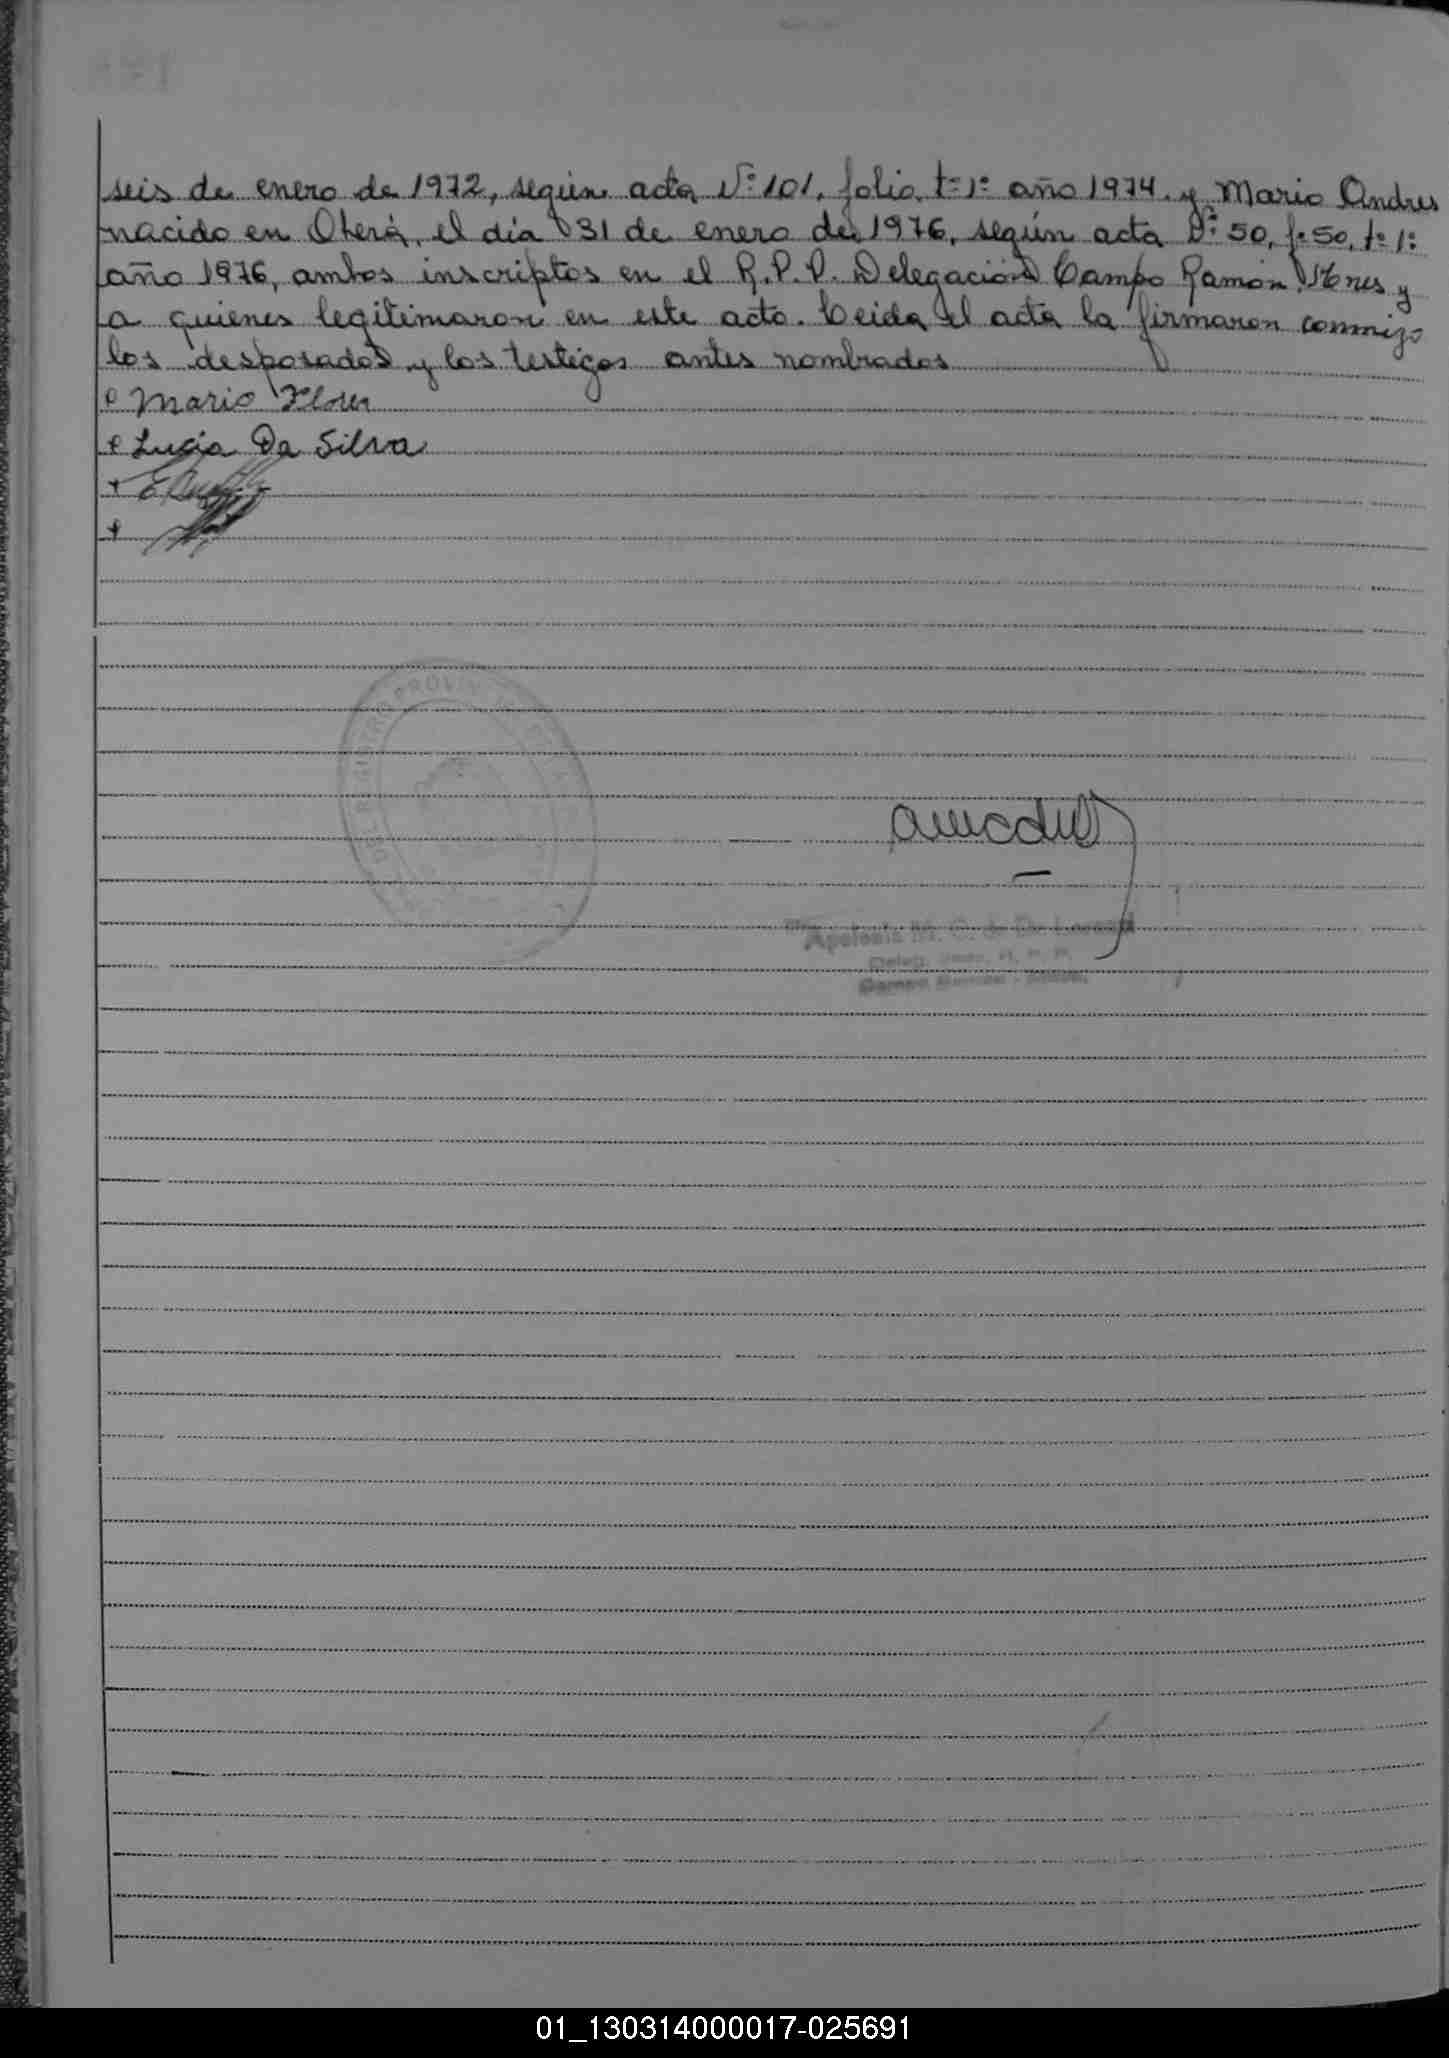 seis de enero de 1972, según acta Nº 101, folio, tº 1º año 1974. y Mario Andres
nacido en Oberá, el día 31 de enero de 1976, según acta Nº 50, fº 50, tº 1º
año 1976, ambos inscriptos en el R.P.P. Delegación Campo Ramón, Mnes y
a quienes legitimaron en este acto. Leida el acta la firmaron conmigo
los desposados y los testigos antes nombrados
Mario Flores
Lucia Da Silva
REGISTRO PROVIN
Apolonia M. C. de De Lorenzi
Deleg.
Campo Ramón
01_130314000017-025691